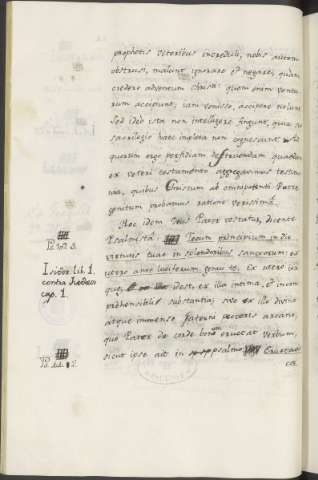 prophetis veteribus increduli, nobis autem
obstrusi, malunt ignorare et negare, quàm
credere adventum Christi: quem enim ventu
rum accipiunt, iam venisse, accipere nolunt
Sed ideo ista non intelligere fingunt, quia
sacrilegio haec impleta non cognoscunt.
quorum ergo perfidiam destruendam quaedam
ex veteri testamento aggregavimus testimo
nia, quibus Christum ab omnipotenti Patre
genitum probamus ratione verissima.
Hoc idem Deus Pater testatur, dicente
Psalmista: Tecum principium in die
virtutis tuae in splendoribus sanctorum: ex
utero ante luciferum genui te. Ex utero ita
que, id est, ex illa intima, et incom
prehensibili substantia, sive ex illo divino
atque immenso paterni pectoris arcano,
quo Pater de corde bonum eructat verbum,
sicut ipse ait in psalmo Eructavit
Isidor. lib. 1.
contra Iudaeos
cap. 1.